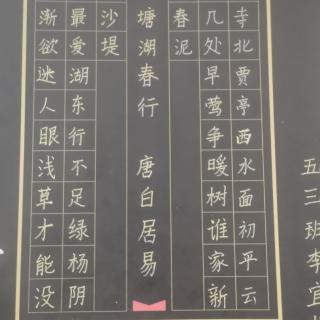 塘湖春行 唐白居易
寺北贾亭西水面初平云
几处早莺争暖树谁家新
春泥
渐欲迷人眼浅草才能没
最爱湖东行不足绿杨阴
沙堤
五三班李宜